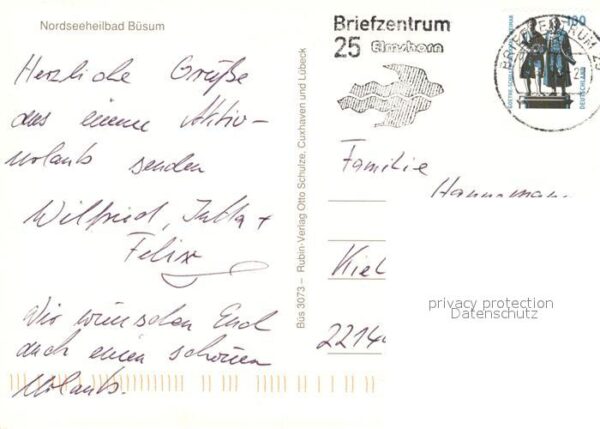 Nordseeheilbad Büsum
Herzliche Grüße
aus einem Aktiv-
urlaub senden
Wilfried, Jutta +
Felix
Wir wünschen Euch
auch einen schönen
Urlaub.
Büs 3073 – Rubin-Verlag Otto Schulze, Cuxhaven und Lübeck
Briefzentrum
25 Elmshorn
BRIEFZENTRUM 25
100
DEUTSCHLAND
Familie
Hannemann
Kiel
2214
privacy protection
Datenschutz